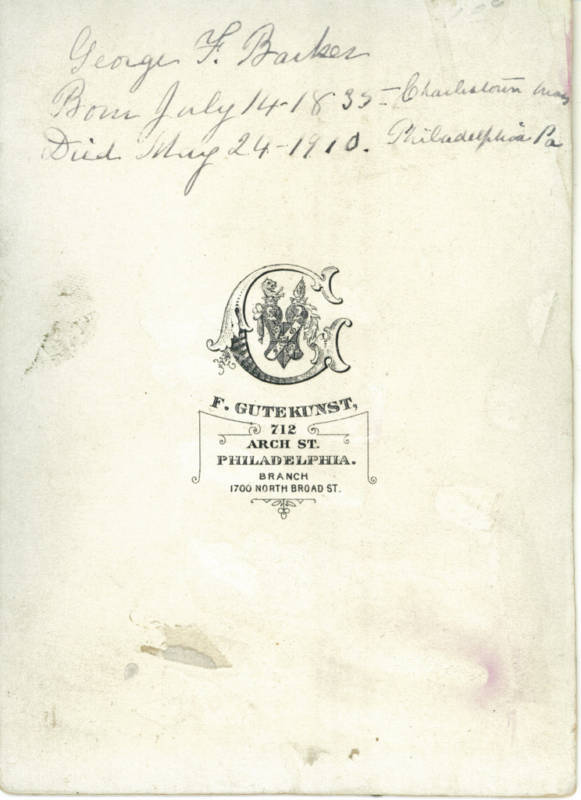 George F. Barker
Born July 14-1835- Charlestown Mass
Died May 24-1910. Philadelphia Pa
G
F. GUTEKUNST,
712
ARCH ST.
PHILADELPHIA.
BRANCH
1700 NORTH BROAD ST.